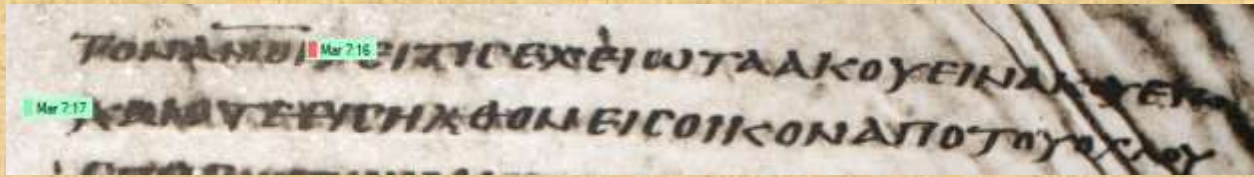 ΤΟΝΑΝΟΝ Mar 7:16 ΕΙΤΙϹΕΧΕΙΩΤΑΑΚΟΥΕΙΝΑΚΟΥΕΤΩ
Mar 7:17 ΚΑΙΟΤΕΕΙϹΗΛΘΟΝΕΙϹΟΙΚΟΝΑΠΟΤΟΥΟΧΛΟΥ